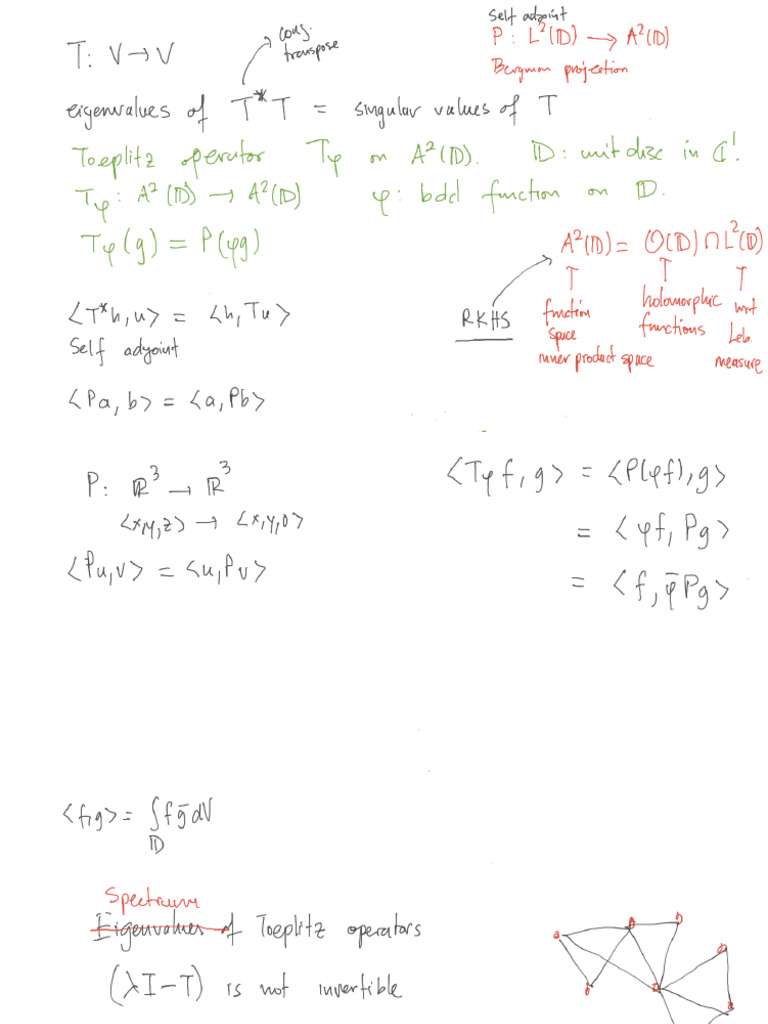 T: V → V
conj.
transpose
Self adjoint
P: L²(𝔻) → A²(𝔻)
Bergman projection
eigenvalues of T*T = singular values of T
Toeplitz operator Tφ on A²(𝔻). 𝔻: unit disc in ℂ¹.
Tφ: A²(𝔻) → A²(𝔻) φ: bdd function on 𝔻.
Tφ(g) = P(φg)
A²(𝔻) = 𝒪(𝔻) ∩ L²(𝔻)
RKHS
function
space
inner product space
holomorphic
functions
wrt
Leb.
measure
⟨T*h,u⟩ = ⟨h,Tu⟩
Self adjoint
⟨Pa,b⟩ = ⟨a,Pb⟩
P: ℝ³ → ℝ³
⟨x,y,z⟩ → ⟨x,y,0⟩
⟨Pu,v⟩ = ⟨u,Pv⟩
⟨Tφf,g⟩ = ⟨P(φf),g⟩
= ⟨φf, Pg⟩
= ⟨f, φ̄Pg⟩
⟨f,g⟩ = ∫ f ḡ dV
𝔻
Spectrum
Eigenvalues of Toeplitz operators
(λI - T) is not invertible